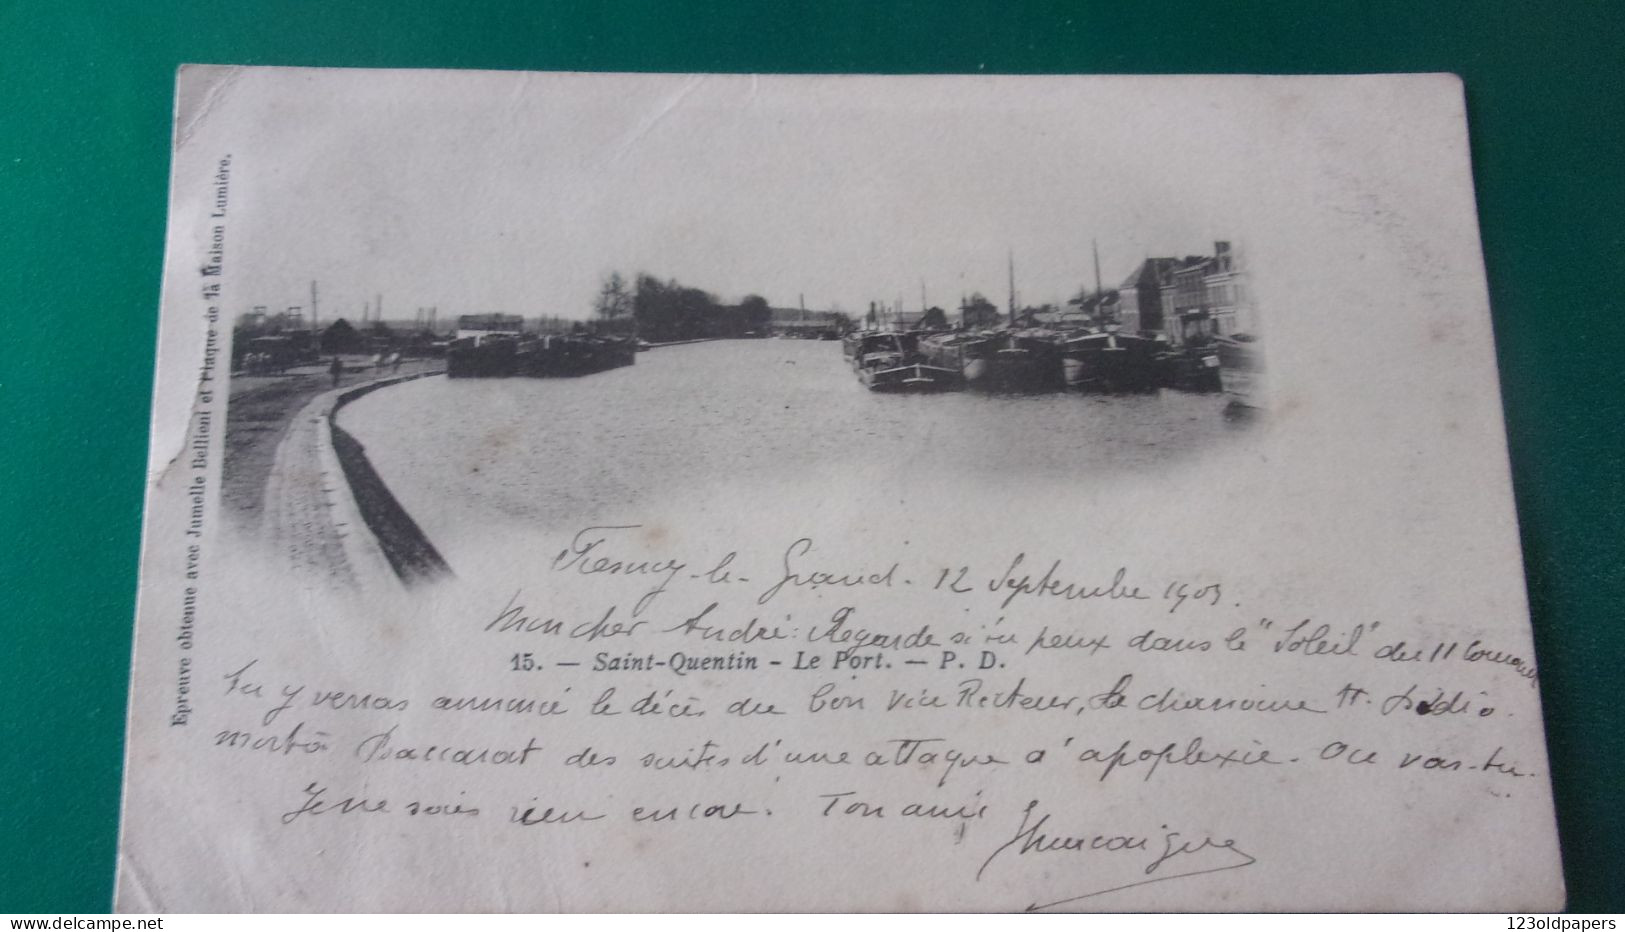 Epreuve obtenue avec Jumelle Bellieni et Plaque de la Maison Lumière.
Fresnoy-le-Grand. 12 Septembre 1903.
Mon cher André: Regarde si tu peux dans le "Soleil" du 11 Courant
15. — Saint-Quentin - Le Port. — P. D.
Tu y verras annoncé le décès du bon Vice Recteur, le chanoine H. Didio.
mort à Baccarat des suites d'une attaque d'apoplexie. Où vas-tu.
Je ne sais rien encore. Ton ami
delcampe.net
123oldpapers